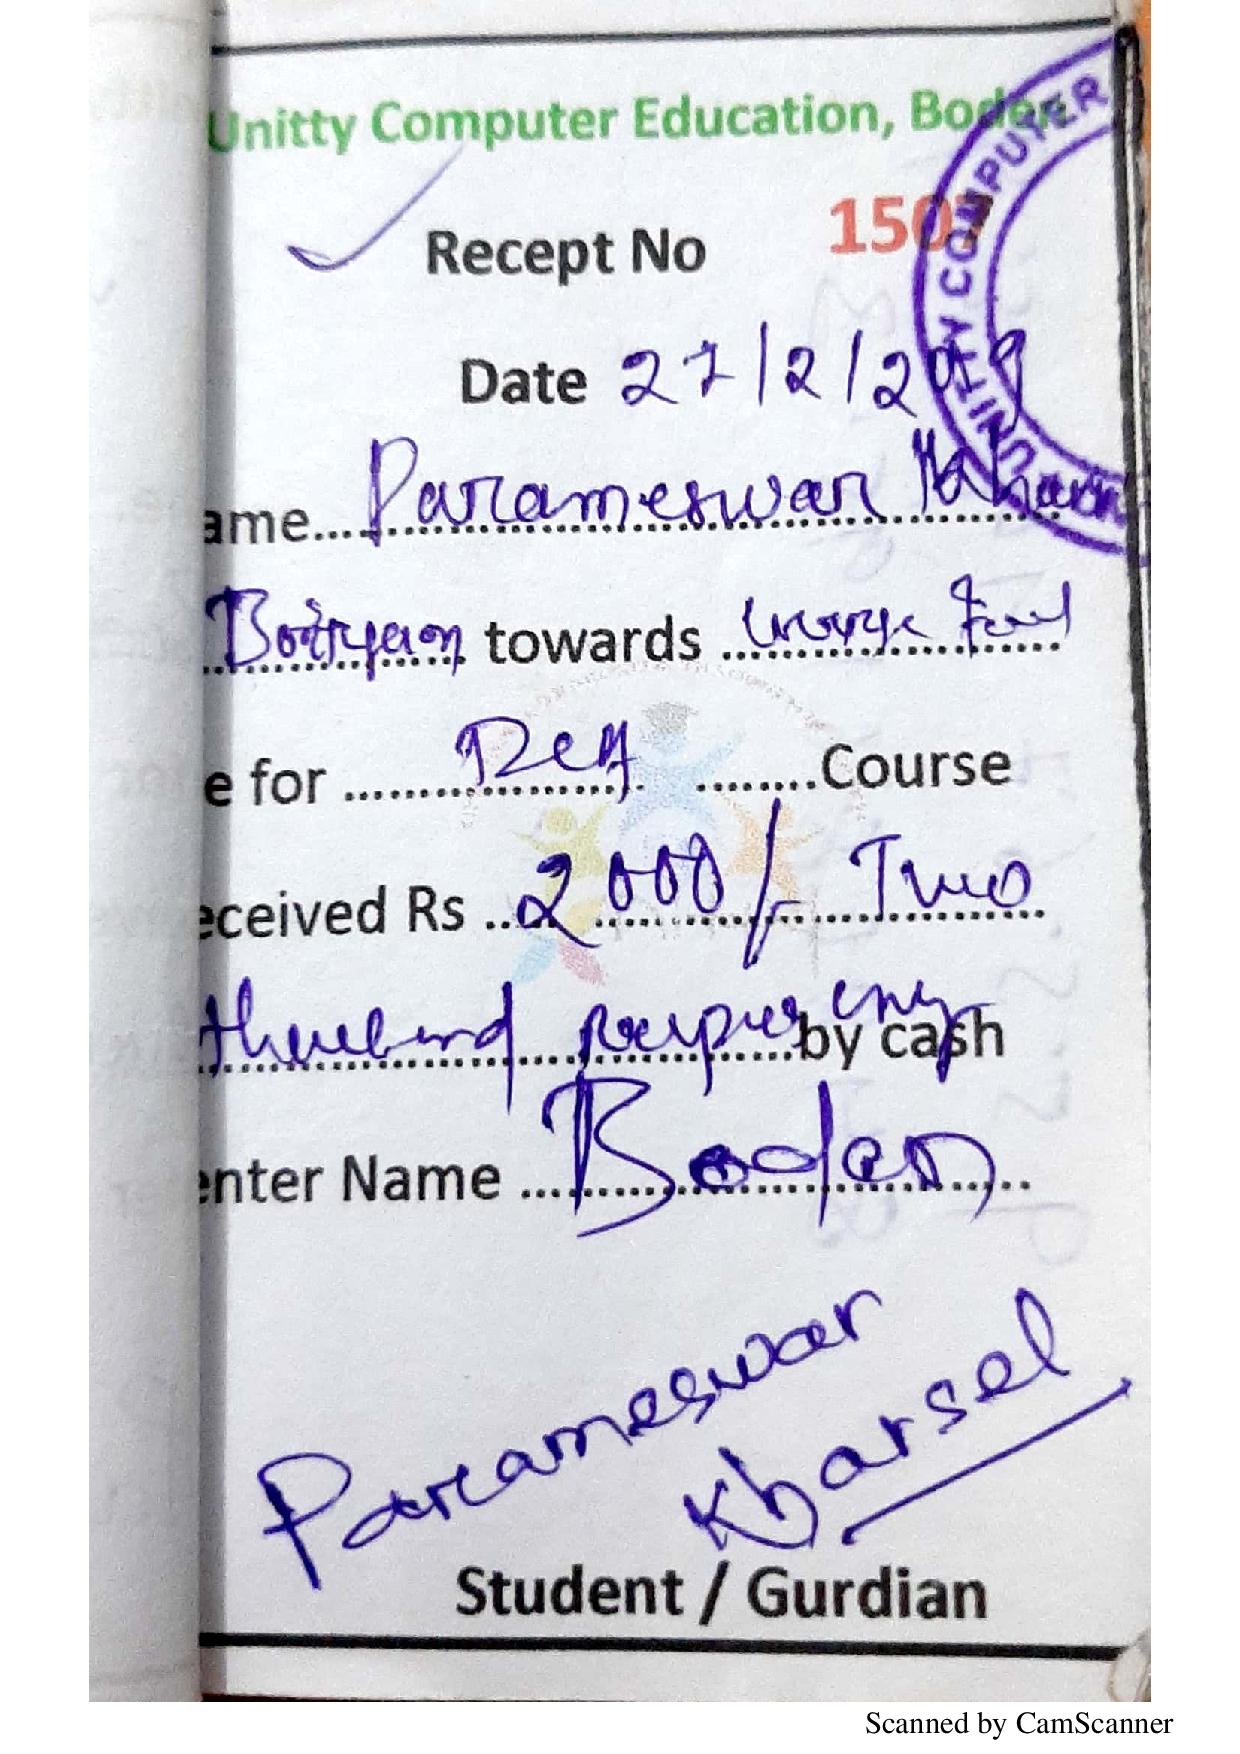 Unitty Computer Education, Boden
Recept No 1507
Date 27/2/2018
ame.... Parameswar Kharsel
towards
e for .... .... Course
eceived Rs .. 2000/- Two
by cash
enter Name .... Boden
Parameswar
Kharsel
Student / Gurdian
UNITTY COMPUTER
Scanned by CamScanner